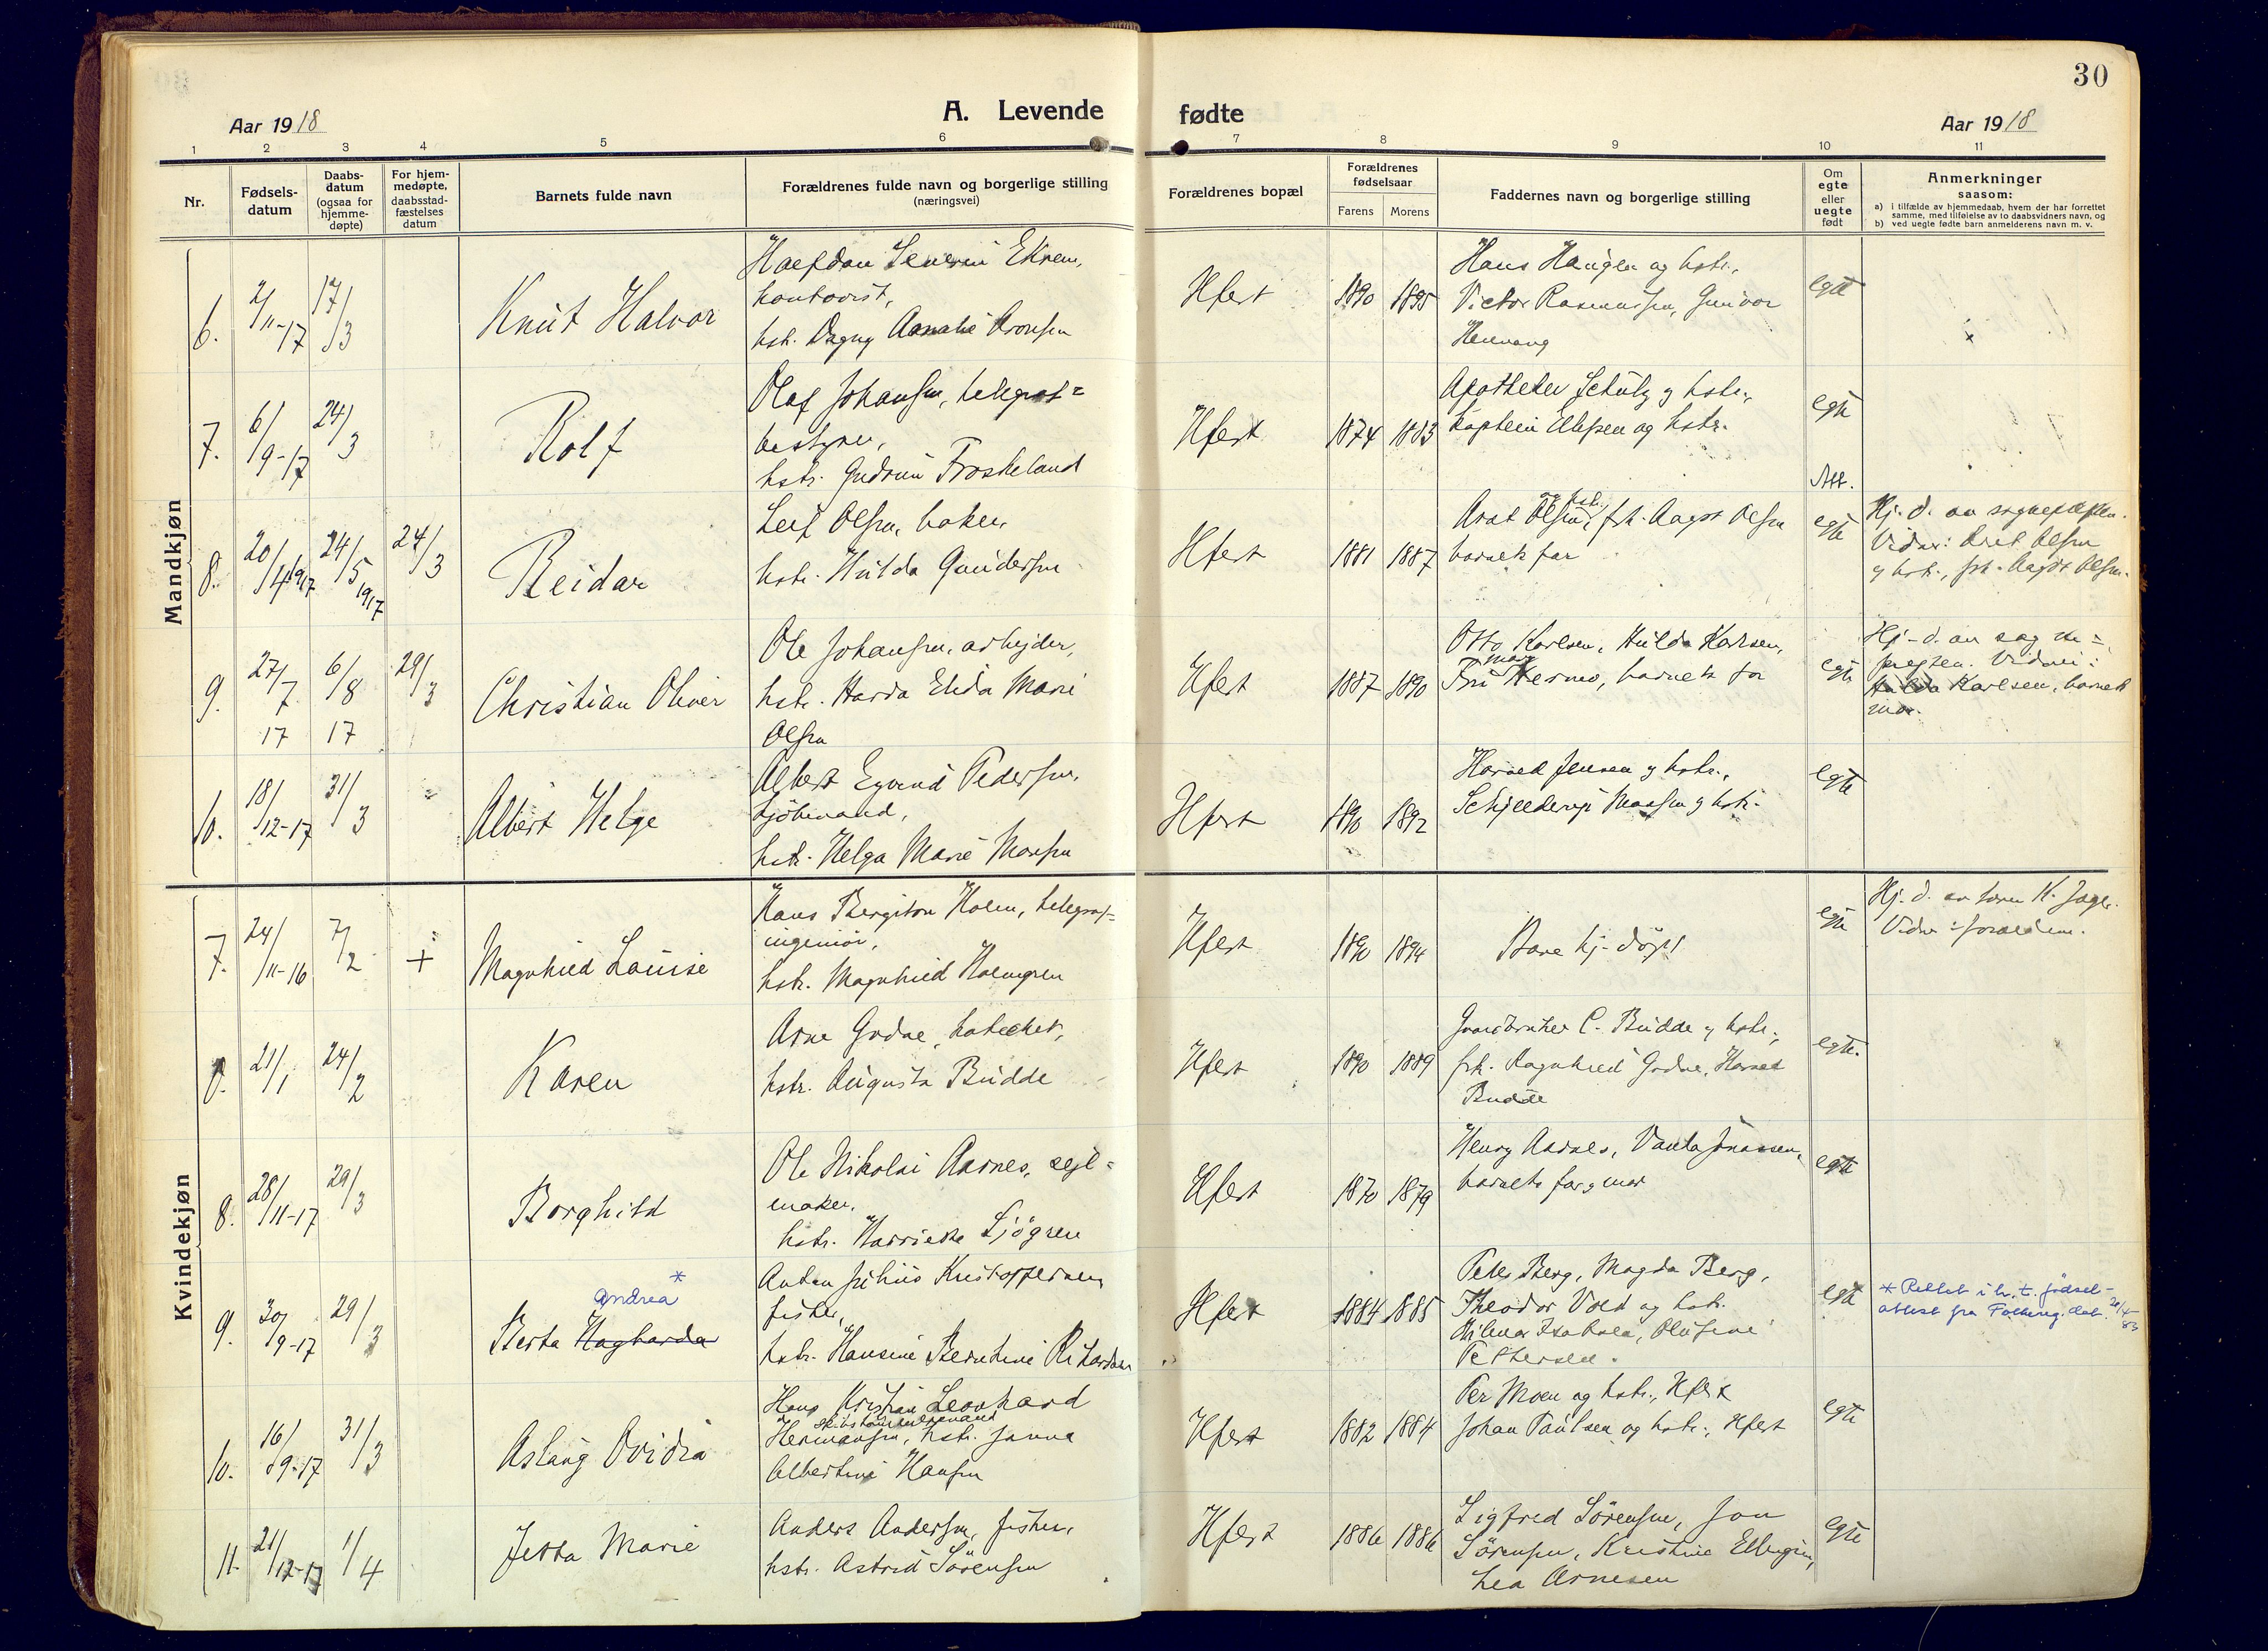 30
Aar 1918
A. Levende fødte
Aar 1918
1 2 3 4 5 6 7 8 9 10 11
Nr.
Fødsels-
datum
Daabs-
datum
(ogsaa for
hjemme-
døpte)
For hjem-
medøpte,
daabsstad-
fæstelses
datum
Barnets fulde navn
Forældrenes fulde navn og borgerlige stilling
(næringsvei)
Forældrenes bopæl
Forældrenes
fødselsaar
Farens Morens
Faddernes navn og borgerlige stilling
Om
egte
eller
uegte
født
Anmerkninger
saasom:
a) i tilfælde av hjemmedaab, hvem der har forrettet
samme, med tilføielse av to daabsvidners navn, og
b) ved uegte fødte barn anmelderens navn m. v.
Mandkjøn
6. 2/11-17 17/3
Knut Halvor
Halfdan Severin Ekrem,
kontorist,
hstr. Dagny Aronsen
Hfest 1890 1895
Hans Haugen og hstr.,
Victor Rasmussen, Gunvor
egte
7. 6/9-17 24/3
Rolf
Olaf Johansen, telegraf=
bestyrer,
hstr. Gudrun Froskeland
Hfest 1874 1883
Apotheker Schulz og hstr.,
Kaptein Ellefsen og hstr.
egte
Att.
8. 20/4 1917 24/5 1917 24/3
Reidar
Leif Olsen, baker,
hstr. Hulda Gundersen
Hfest 1881 1887
og hstr.
Olsen, frk. Aagot Olsen
barnets far
egte
Hj. d. av sognepræsten.
Vidner: Olsen
og hstr., frk. Aagot Olsen.
9. 27/7 17 6/8 17 29/3
Christian Oliver
Ole Johansen, arbejder,
hstr. Harda Elida Marie
Olsen
Hfest 1887 1890
Otto Karlsen, Hulda Karlsen,
Fru barnets far
egte
Hj-d. av sogne=
præsten. Vidner:
Hulda Karlsen, barnets
mor.
10. 18/12-17 31/3
Albert Helge
Albert Eyvind Pedersen,
sjømand,
hstr. Helga Marie Monsen
Hfest 1890 1892
Harald Jensen og hstr.,
Schjelderup Monsen og hstr.
egte
Kvindekjøn
7. 24/11-16 7/2 +
Magnhild Louise
Hans Holm, telegraf=
ingeniør,
hstr. Magnhild Holmgren
Hfest 1890 1894
Bare hj-døpt
egte
Hj. d. av K.
Vidner: forældrene.
8. 21/1 24/2
Karen
Arne Godne, kateket,
hstr. Augusta Budde
Hfest 1890 1889
Gaardbruker C. Budde og hstr.,
frk. Ragnhild Godne, Harald
Budde
egte.
8. 28/11-17 29/3
Borghild
Ole Nikolai Aarnes, sejl=
maker,
hstr. Sjögren
Hfest 1870 1879
Henry Aarnes, Vanda Jonassen,
barnets far og mor
egte
9. 30/9-17 29/3
*
Andrea
Berta Hagbarda
Anton Julius Kristoffersen
fisker,
hstr. Hansine Bernhine Rikardsen
Hfest 1884 1885
Peter Berg, Magda Berg,
Theodor Vold og hstr.
Hilmar Isaksen, Olufine
Pettersen.
egte
* Rettet i h. t. fødsel-
attest fra Folkereg. dat. 20/4-83
10. 16/9-17 31/3
Aslaug Ovidia
Hans Kristian Leonhard
Hermansen, hstr. Janna
Albertine Hansen
Hfest 1882 1884
Per Moen og hstr., Hfest
Johan Paulsen og hstr., Hfest
egte
11. 21/12-17 1/4
Jetta Marie
Anders Andersen, fisker,
hstr. Astrid Sörensen
Hfest 1886 1886
Sigfred Sörensen, Jon
Sörensen, Kristine Ellingsen,
Lea Arnesen
egte